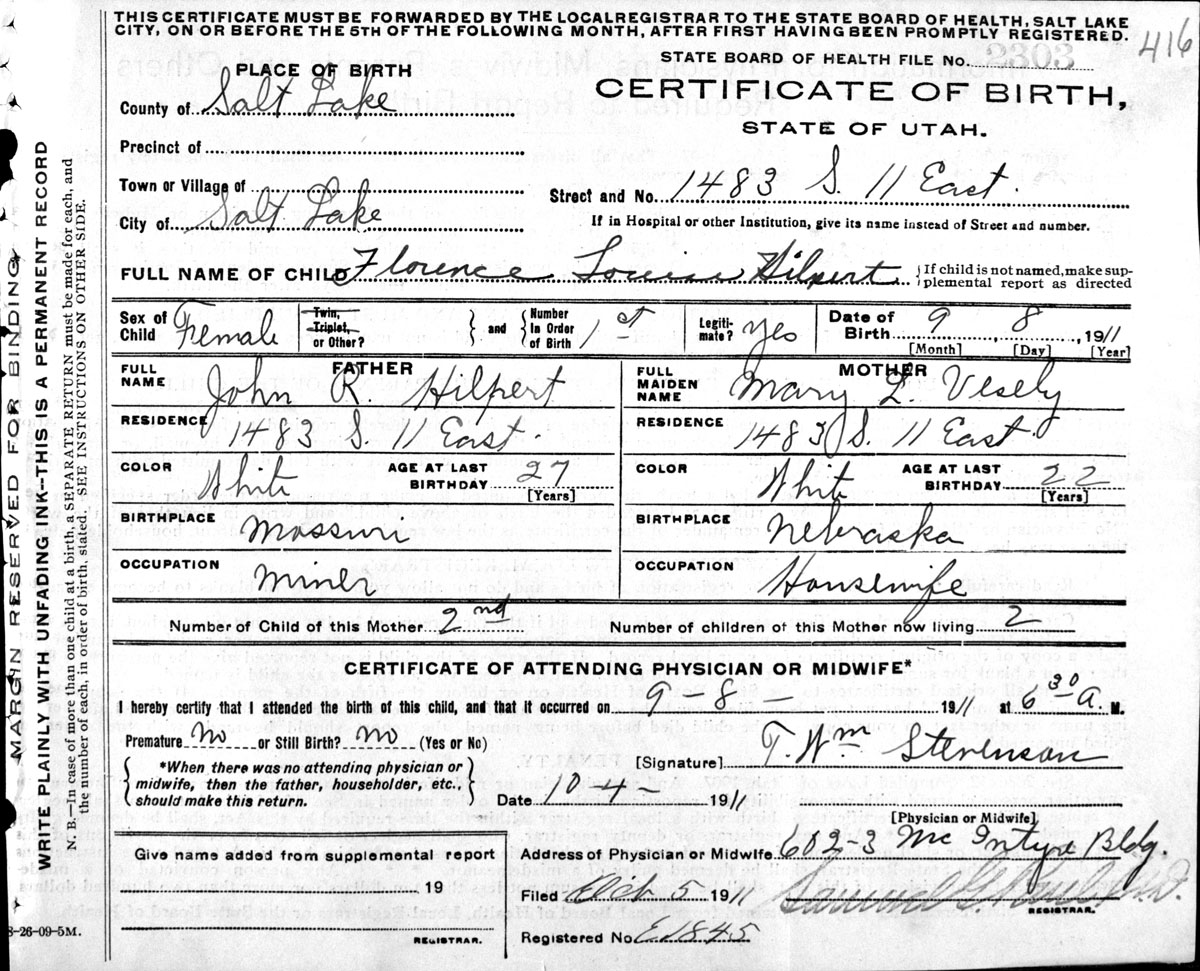 THIS CERTIFICATE MUST BE FORWARDED BY THE LOCAL REGISTRAR TO THE STATE BOARD OF HEALTH, SALT LAKE
CITY, ON OR BEFORE THE 5TH OF THE FOLLOWING MONTH, AFTER FIRST HAVING BEEN PROMPTLY REGISTERED.
416
STATE BOARD OF HEALTH FILE No. 2303
PLACE OF BIRTH
CERTIFICATE OF BIRTH,
STATE OF UTAH.
County of Salt Lake
Precinct of
Town or Village of
Street and No. 1483 S. 11 East.
City of Salt Lake
If in Hospital or other Institution, give its name instead of Street and number.
FULL NAME OF CHILD Florence Louise Hilpert
If child is not named, make sup-
plemental report as directed
Sex of Child Female
Twin, Triplet, or Other?
and
Number In Order of Birth 1st
Legiti-mate? Yes
Date of Birth 9, 8, 1911
[Month] [Day] [Year]
FATHER
FULL NAME John R. Hilpert
MOTHER
FULL MAIDEN NAME Mary L. Vesely
RESIDENCE 1483 S. 11 East.
RESIDENCE 1483 S. 11 East
COLOR White AGE AT LAST BIRTHDAY 27 [Years]
COLOR White AGE AT LAST BIRTHDAY 22 [Years]
BIRTHPLACE Missouri
BIRTHPLACE Nebraska
OCCUPATION Miner
OCCUPATION Housewife
Number of Child of this Mother 2nd
Number of children of this Mother now living 2
CERTIFICATE OF ATTENDING PHYSICIAN OR MIDWIFE*
I hereby certify that I attended the birth of this child, and that it occurred on 9 8 — 1911 at 6 30 A. M.
Premature No or Still Birth? No (Yes or No)
*When there was no attending physician or
midwife, then the father, householder, etc.,
should make this return.
[Signature] T. Wm Stevenson
Date 10-4- 1911
[Physician or Midwife]
Give name added from supplemental report
19
REGISTRAR.
Address of Physician or Midwife 602-3 Mc Intyre Bldg.
Filed Oct 5 1911
REGISTRAR.
Registered No. E1845
8-26-09-5M.
MARGIN RESERVED FOR BINDING
WRITE PLAINLY WITH UNFADING INK--THIS IS A PERMANENT RECORD
N. B.—In case of more than one child at a birth, a SEPARATE RETURN must be made for each, and
the number of each, in order of birth, stated. SEE INSTRUCTIONS ON OTHER SIDE.